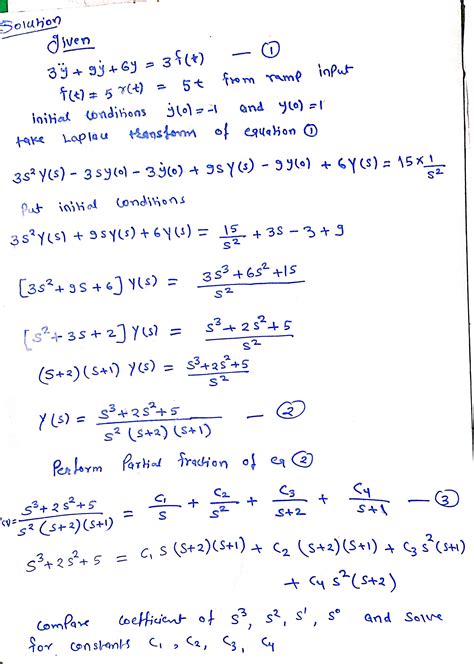 Solution
Given
3ÿ + 9ẏ + 6y = 3f(t) — ①
f(t) = 5 r(t) = 5t from ramp input
initial conditions ẏ(0) = -1 and y(0) = 1
take Laplace transform of equation ①
3s² Y(s) - 3sy(0) - 3ẏ(0) + 9s Y(s) - 9y(0) + 6Y(s) = 15 × 1/s²
Put initial conditions
3s² Y(s) + 9s Y(s) + 6Y(s) = 15/s² + 3s - 3 + 9
[3s² + 9s + 6] Y(s) = (3s³ + 6s² + 15)/s²
[s² + 3s + 2] Y(s) = (s³ + 2s² + 5)/s²
(s+2)(s+1) Y(s) = (s³ + 2s² + 5)/s²
Y(s) = (s³ + 2s² + 5)/(s² (s+2)(s+1)) — ②
Perform Partial fraction of eq ②
(s³ + 2s² + 5)/(s² (s+2)(s+1)) = C₁/s + C₂/s² + C₃/(s+2) + C₄/(s+1) — ③
s³ + 2s² + 5 = C₁ s (s+2)(s+1) + C₂ (s+2)(s+1) + C₃ s² (s+1)
+ C₄ s² (s+2)
compare coefficient of s³, s², s', s⁰ and solve
for constants C₁, C₂, C₃, C₄